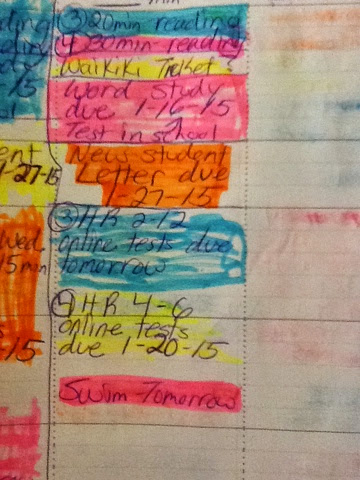 ③ 20 min reading
④ 30 min reading
Waikiki Tricket?
Word Study
due 1-16-15
Test in school
News student
Letter due
1-27-15
③ HR 2-12
online tests due
tomorrow
④ HR 4-6
online tests
due 1-20-15
Swim Tomorrow
ent
1-27-15
Wed.
15 min
-15